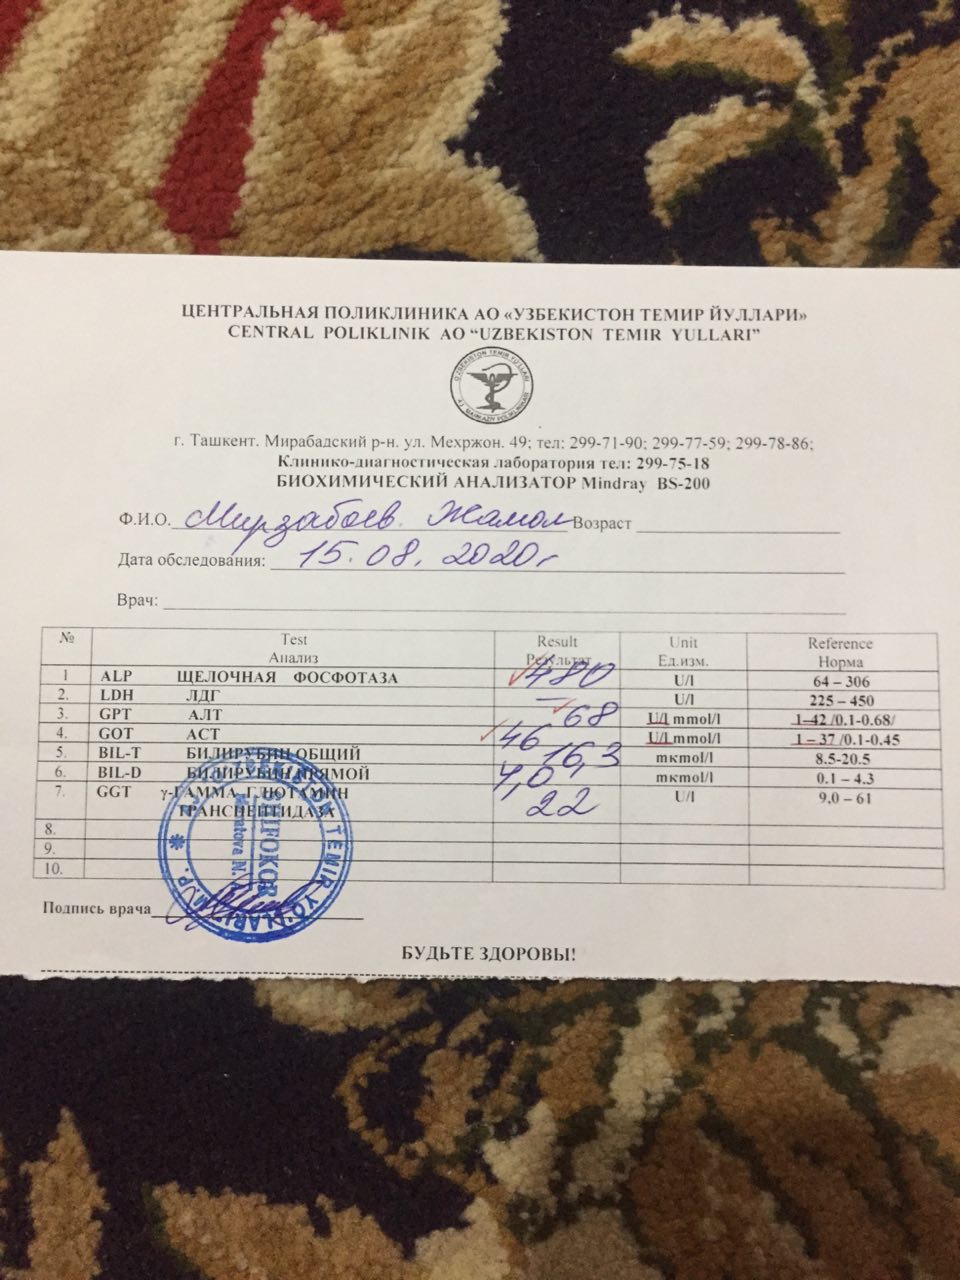 ЦЕНТРАЛЬНАЯ ПОЛИКЛИНИКА АО «УЗБЕКИСТОН ТЕМИР ЙУЛЛАРИ»
CENTRAL POLIKLINIK AO “UZBEKISTON TEMIR YULLARI”
O'ZBEKISTON TEMIR YO'LLARI
AJ MARKAZIY POLIKLINIKASI
г. Ташкент. Мирабадский р-н. ул. Мехржон. 49; тел: 299-71-90; 299-77-59; 299-78-86;
Клинико-диагностическая лаборатория тел: 299-75-18
БИОХИМИЧЕСКИЙ АНАЛИЗАТОР Mindray BS-200
Ф.И.О. Мирзабоев Жамол Возраст
Дата обследования: 15.08.2020г
Врач:
№ Test Result Unit Reference
Анализ Результат Ед.изм. Норма
1 ALP ЩЕЛОЧНАЯ ФОСФОТАЗА 480 U/l 64 – 306
2. LDH ЛДГ – U/l 225 – 450
3. GPT АЛТ 68 U/l mmol/l 1–42 /0.1-0.68/
4. GOT АСТ 46 U/l mmol/l 1 – 37 /0.1-0.45
5. BIL-T БИЛИРУБИН ОБЩИЙ 16,3 mкmol/l 8.5-20.5
6. BIL-D БИЛИРУБИН ПРЯМОЙ 4,0 mкmol/l 0.1 – 4.3
7. GGT γ-ГАММА ГЛЮТАМИН 22 U/l 9,0 – 61
ТРАНСПЕПТИДАЗА
8.
9.
10.
TEMIR YO'LLARI
SHIFOKOR
Подпись врача
БУДЬТЕ ЗДОРОВЫ!